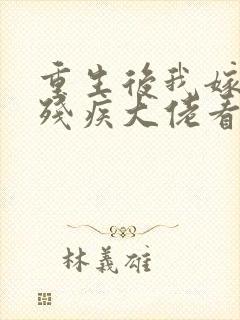 重生後我嫁
殘疾大佬看
林義雄